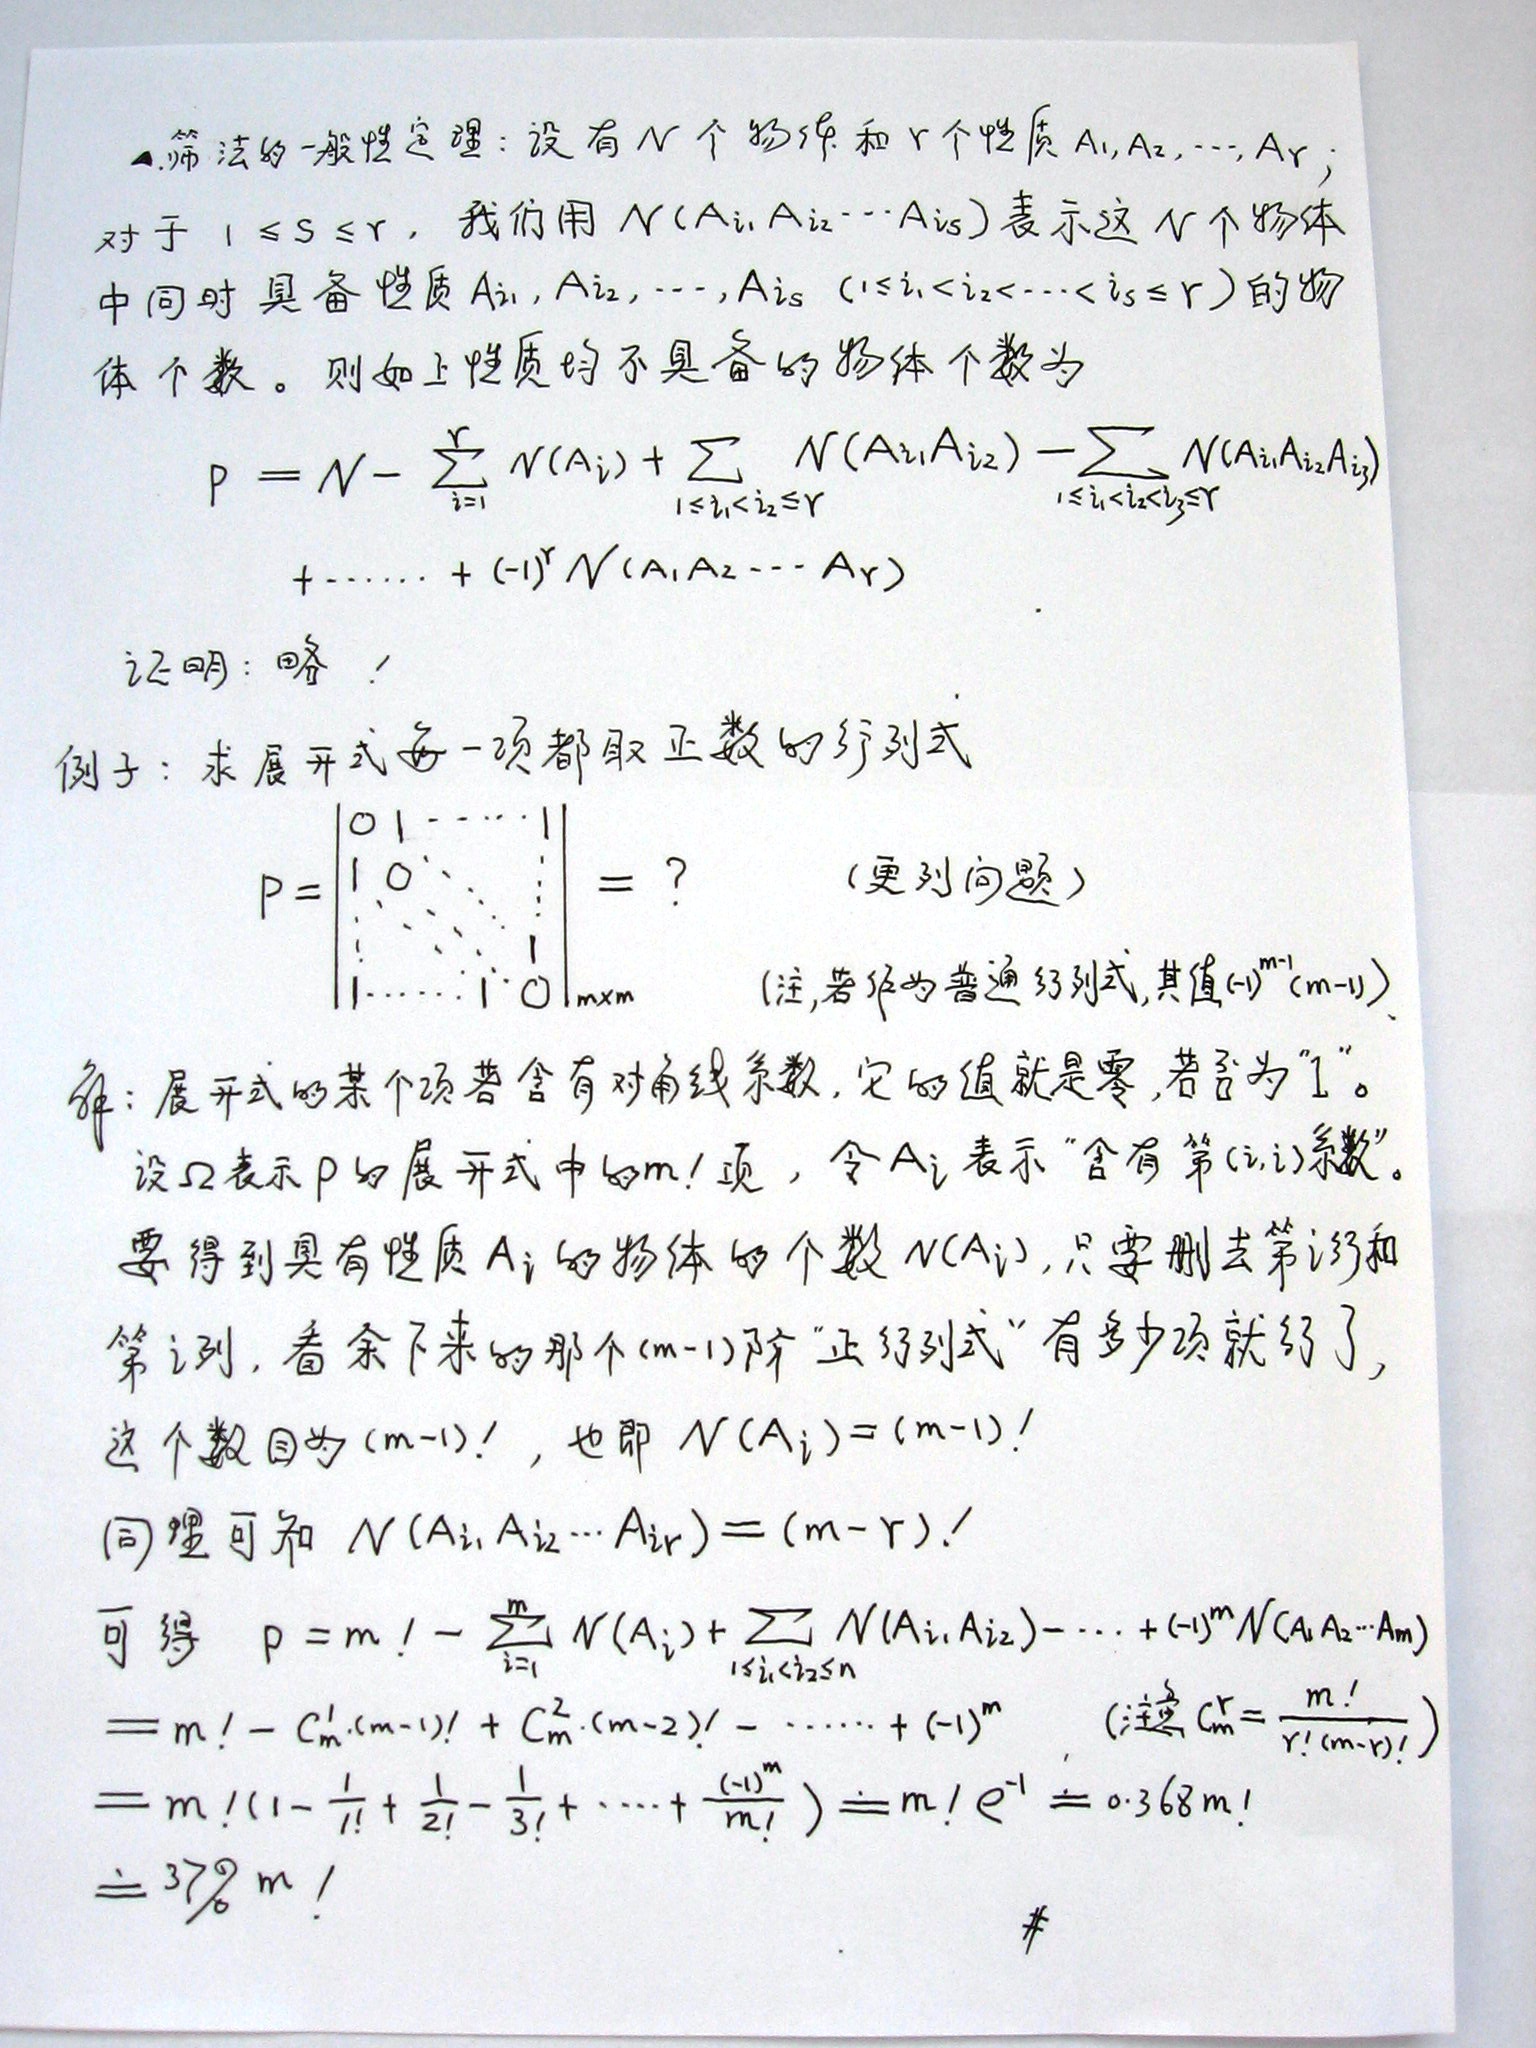 ▲.筛法的一般性定理：设有N个物体和r个性质A₁,A₂,---,Aᵣ；
对于 1≤s≤r，我们用N(Aᵢ₁Aᵢ₂---Aᵢₛ)表示这N个物体
中同时具备性质Aᵢ₁,Aᵢ₂,---,Aᵢₛ(1≤i₁<i₂<---<iₛ≤r)的物
体个数。则如上性质均不具备的物体个数为
P = N - ∑_{i=1}^{r} N(Aᵢ) + ∑_{1≤i₁<i₂≤r} N(Aᵢ₁Aᵢ₂) - ∑_{1≤i₁<i₂<i₃≤r} N(Aᵢ₁Aᵢ₂Aᵢ₃)
+ ······ + (-1)^r N(A₁A₂---Aᵣ)
证明：略！
例子：求展开式每一项都取正数的行列式
P = | 0 1 ··· 1 
1 0 ··· 
··· 1 
1 ··· 1 0 | m×m = ? (更列问题)
(注，若作为普通行列式，其值(-1)^{m-1}(m-1))
解：展开式的某个项若含有对角线系数，它的值就是零，若否为"1"。
设Ω表示P的展开式中的m!项，令Aᵢ表示"含有第(i,i)系数"。
要得到具有性质Aᵢ的物体的个数N(Aᵢ)，只要删去第i行和
第i列，看余下来的那个(m-1)阶"正行列式"有多少项就行了，
这个数目为(m-1)!，也即 N(Aᵢ)=(m-1)!
同理可知 N(Aᵢ₁Aᵢ₂···Aᵢᵣ)=(m-r)!
可得 P=m! - ∑_{i=1}^{m} N(Aᵢ) + ∑_{1≤i₁<i₂≤n} N(Aᵢ₁Aᵢ₂) - ···· + (-1)^m N(A₁A₂···Aₘ)
= m! - C_m^1·(m-1)! + C_m^2·(m-2)! - ······ + (-1)^m (注意 C_m^r = m!/(r!(m-r)!))
= m!(1 - 1/1! + 1/2! - 1/3! + ····· + (-1)^m/m!) ≐ m! e^{-1} ≐ 0.368m!
≐ 37% m! #